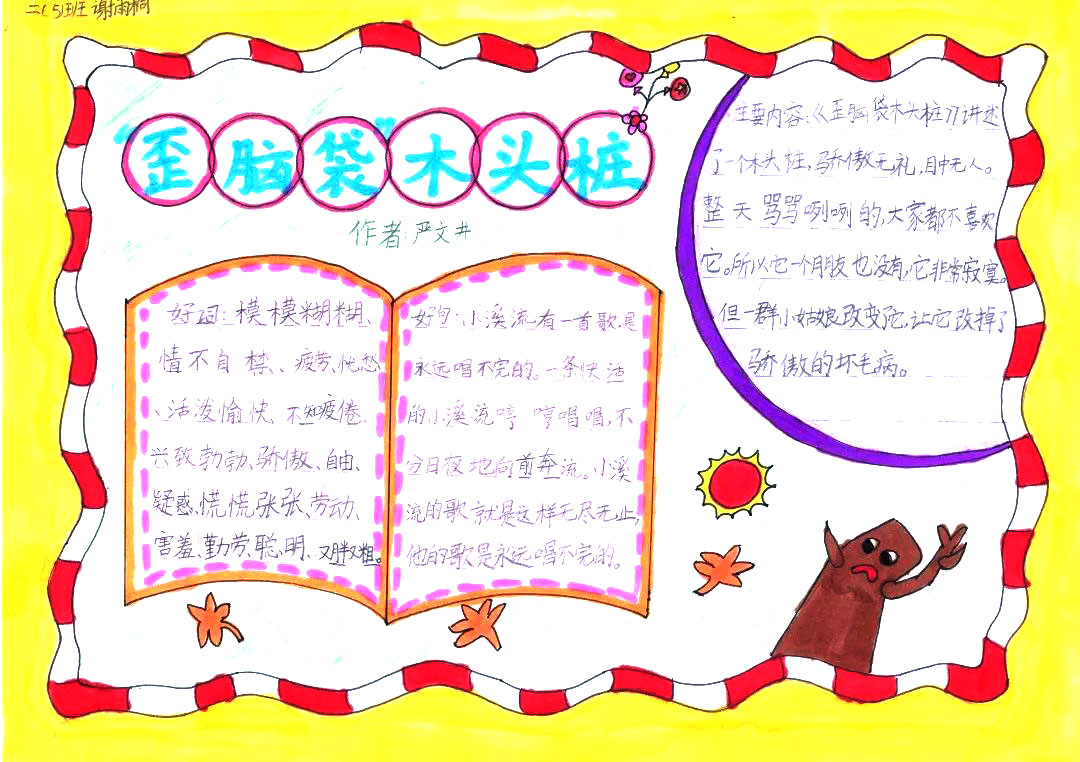 二(5)班 谢雨桐
"歪脑袋"木头桩
作者:严文井
好词:模模糊糊、
情不自禁、疲劳、忧愁
、活泼愉快、不知疲倦、
兴致勃勃、骄傲、自由、
疑惑、慌慌张张、劳动、
害羞、勤劳、聪明、又胖又粗。
好句:小溪流有一首歌,是
永远唱不完的。一条快活
的小溪流哼哼唱唱,不
分日夜地向前奔流。小溪
流的歌就是这样无尽无止,
他的歌是永远唱不完的。
主要内容:《歪脑袋木头桩》讲述
了一个木头桩,骄傲无礼,目中无人。
整天骂骂咧咧的,大家都不喜欢
它。所以它一个朋友也没有,它非常寂寞。
但一群小姑娘改变了它,让它改掉了
骄傲的坏毛病。